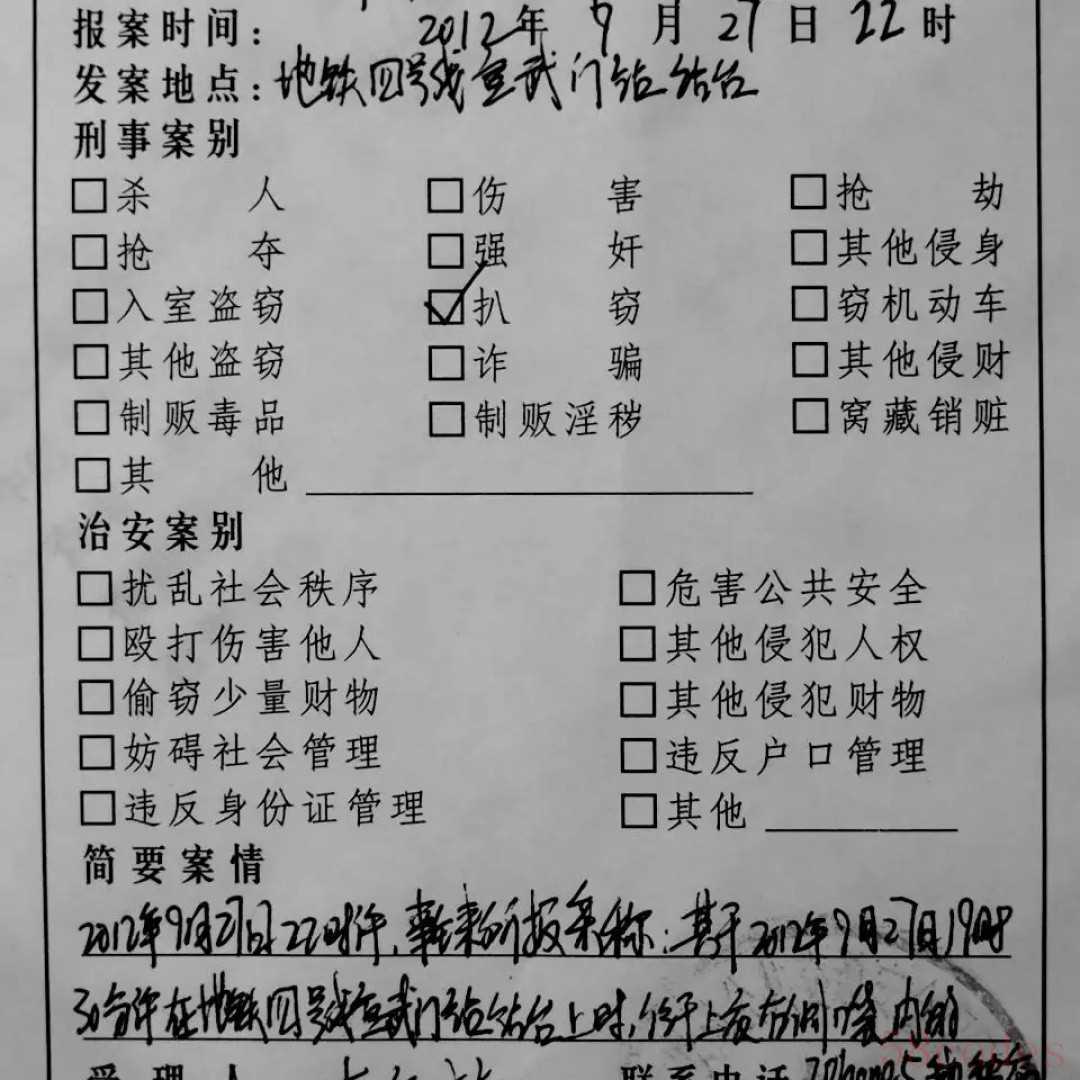 报案时间: 2012年9月27日22时
发案地点:地铁四号线宣武门站站台
刑事案别
□杀人 □伤害 □抢劫
□抢夺 □强奸 □其他侵身
□入室盗窃 ☑扒窃 □窃机动车
□其他盗窃 □诈骗 □其他侵财
□制贩毒品 □制贩淫秽 □窝藏销赃
□其他
治安案别
□扰乱社会秩序 □危害公共安全
□殴打伤害他人 □其他侵犯人权
□偷窃少量财物 □其他侵犯财物
□妨碍社会管理 □违反户口管理
□违反身份证管理 □其他
简要案情
2012年9月27日22时许,来所报案称:其于2012年9月27日19时
30分许在地铁四号线宣武门站站台上时,上衣右侧口袋内的
受理人 联系电话